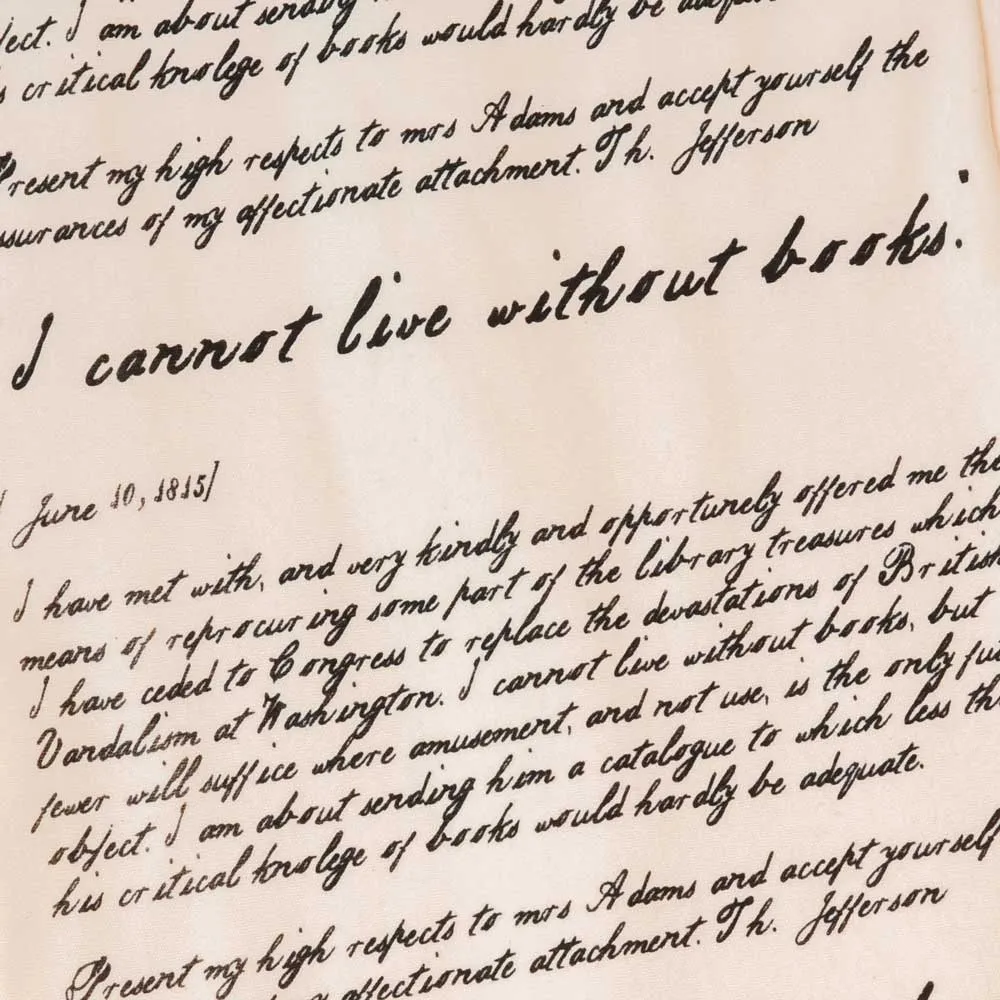 ject. I am about sending
critical knolege of books would hardly be
Present my high respects to mrs Adams and accept yourself the
ssurances of my affectionate attachment. Th. Jefferson
I cannot live without books.
June 10, 1815]
I have met with, and very kindly and opportunely offered me the
means of reprocuring some part of the library treasures which
I have ceded to Congress to replace the devastations of British
Vandalism at Washington. I cannot live without books, but
fewer will suffice where amusement, and not use, is the only fu
object. I am about sending him a catalogue to which less th
his critical knolege of books would hardly be adequate.
Present my high respects to mrs Adams and accept yourself
affectionate attachment. Th. Jefferson